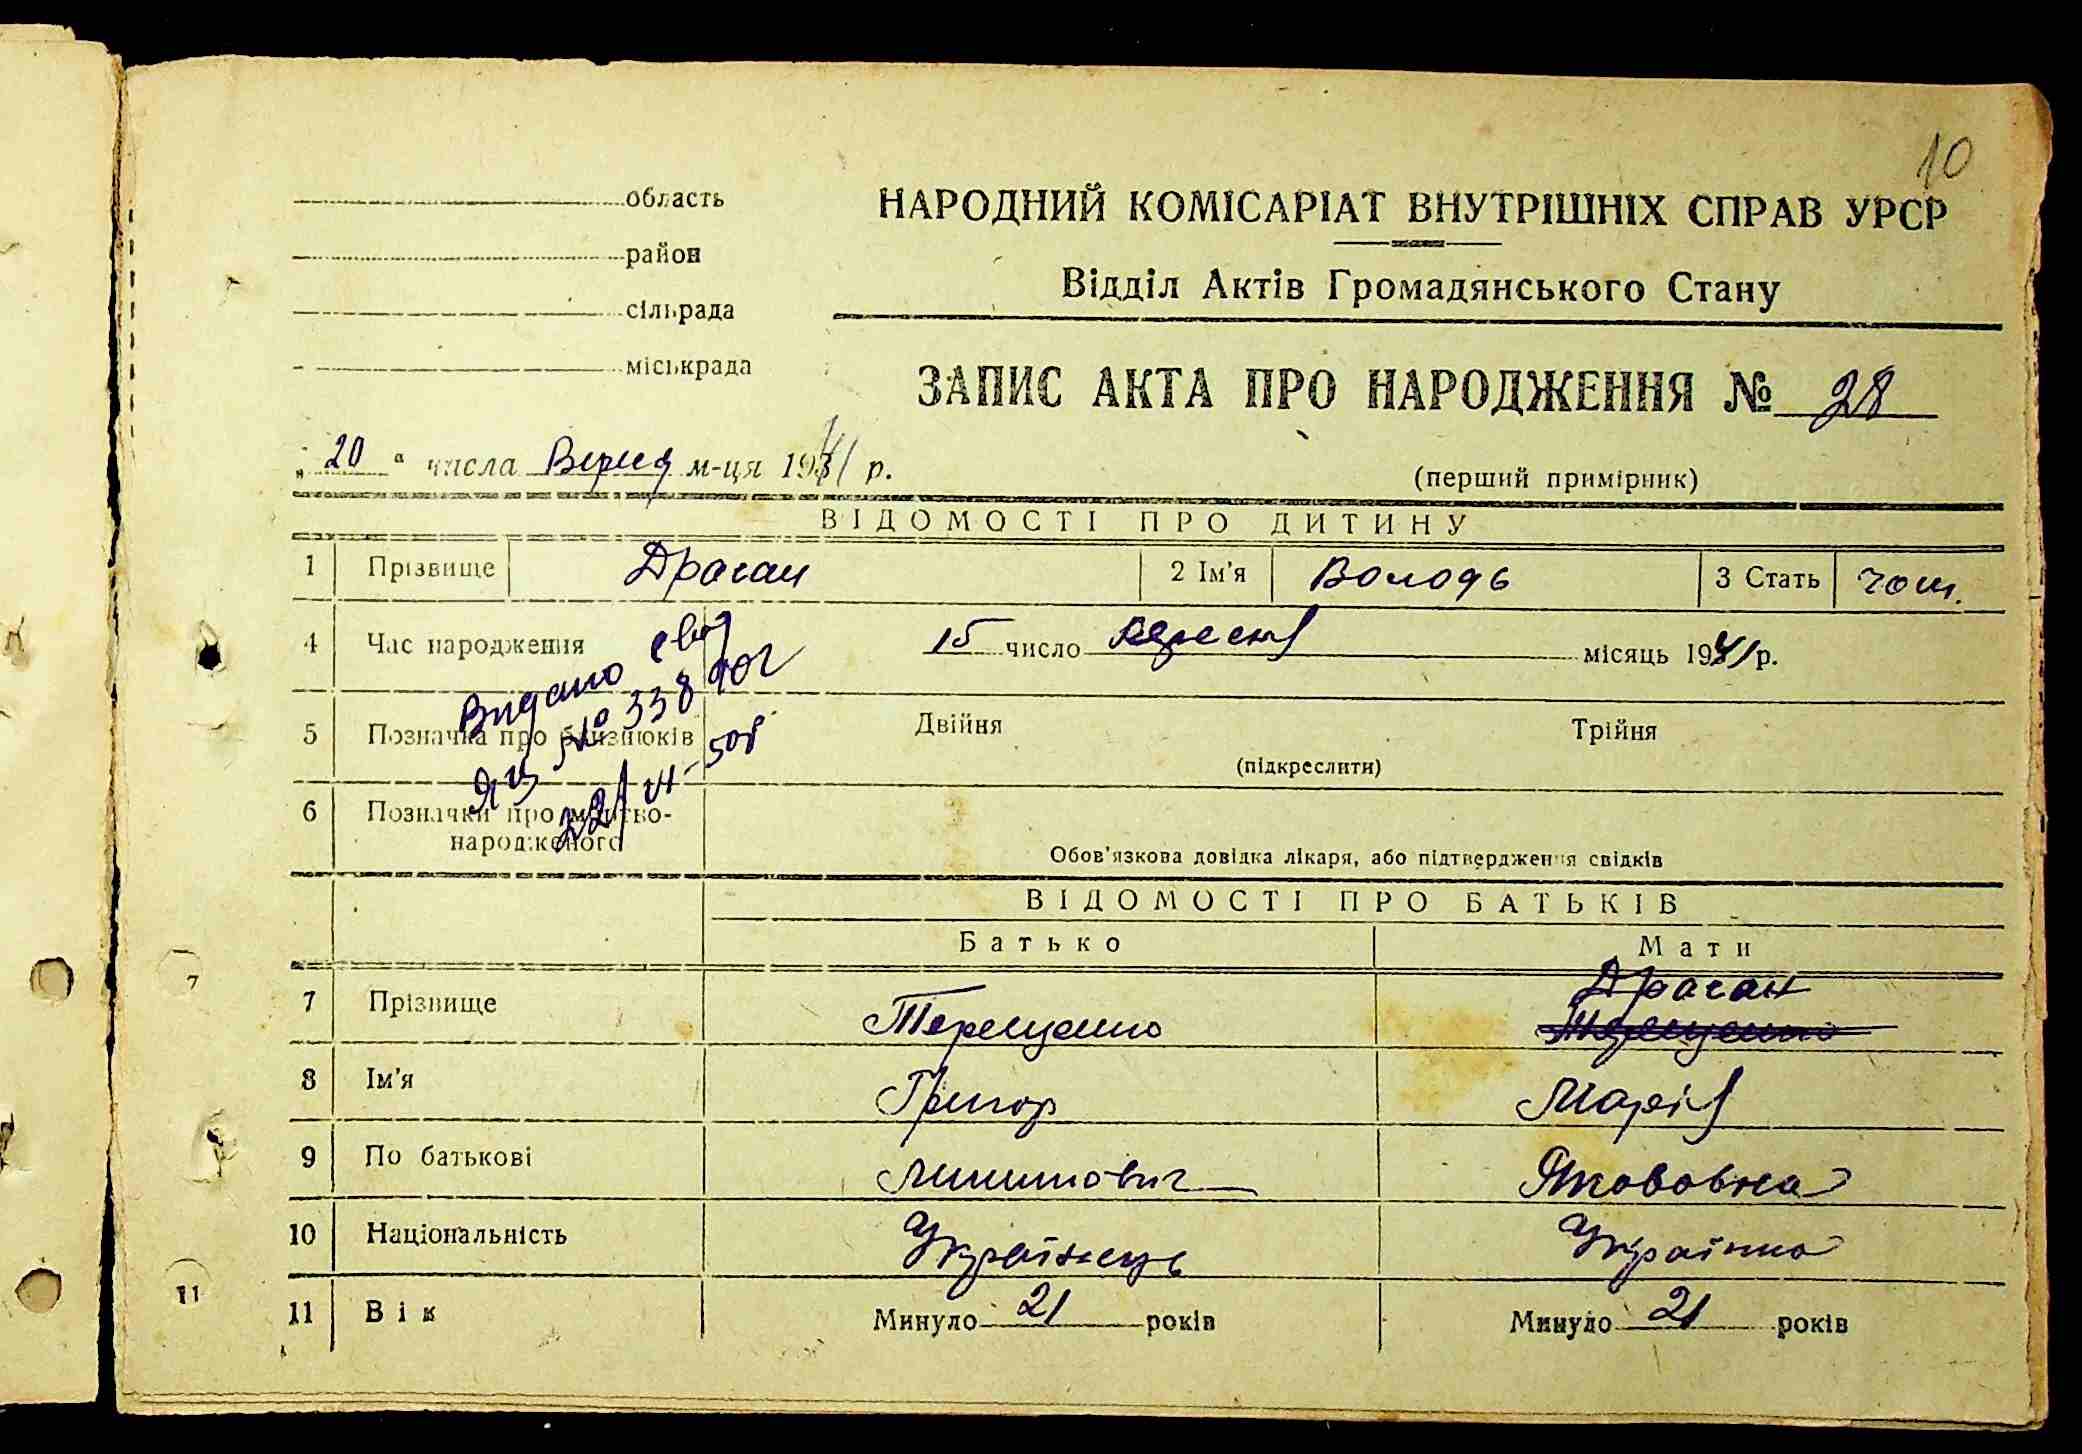 10
область
район
сільрада
міськрада
НАРОДНИЙ КОМІСАРІАТ ВНУТРІШНІХ СПРАВ УРСР
Відділ Актів Громадянського Стану
ЗАПИС АКТА ПРО НАРОДЖЕННЯ № 28
„20“ числа Верес м-ця 1941 р.
(перший примірник)
ВІДОМОСТІ ПРО ДИТИНУ
1 Прізвище Драган 2 Ім'я Володь 3 Стать чол.
4 Час народження 15 число Вересня місяць 1941 р.
Видано свід
ЯЦ № 338402
22/VI-50г
5 Позначка про близнюків Двійня Трійня
(підкреслити)
6 Позначки про мертво-
народженого
Обов'язкова довідка лікаря, або підтвердження свідків
ВІДОМОСТІ ПРО БАТЬКІВ
Батько Мати
Драган
7 Прізвище Терещенко Терещенко
8 Ім'я Григор Марія
9 По батькові Якововна
10 Національність Українець Українка
11 Вік Минуло 21 років Минуло 21 років
7
11